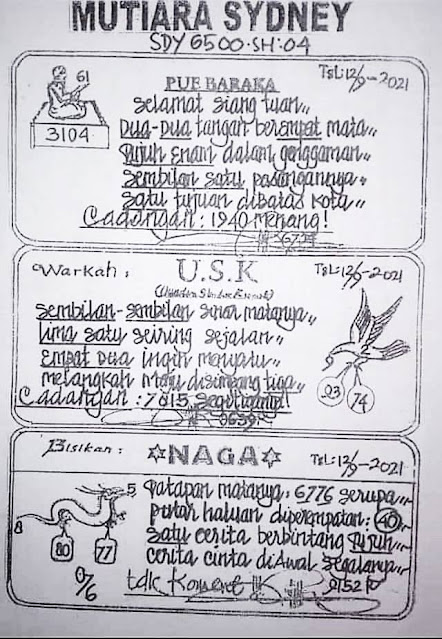 MUTIARA SYDNEY
SDY 6500.SH:04
TGL:12/9-2021
61
3104
PUE BARAKA
Selamat siang tuan,,
Dua-Dua tangan berempat mata,,
Tujuh Enam dalam genggaman,,
Sembilan satu pasangannya,,
Satu tujuan dibatas kota,,
Cadangan : 1940 menang!
Warkah :
U.S.K
TGL:12/9-2021
Sembilan-sembilan sinar matanya,,
Lima satu seiring sejalan,,
Empat Dua ingin menyatu,,
melangkah maju disimpang tiga,,
Cadangan : 7815
03
74
Bisikan :
☆NAGA☆
TGL:12/9-2021
5
8
80
77
0/6
Tatapan matanya : 6776 serupa,,
putar haluan diperempatan : 40,,
satu cerita berbintang Tujuh,,
cerita cinta diAwal segalanya,,
tdk Koment